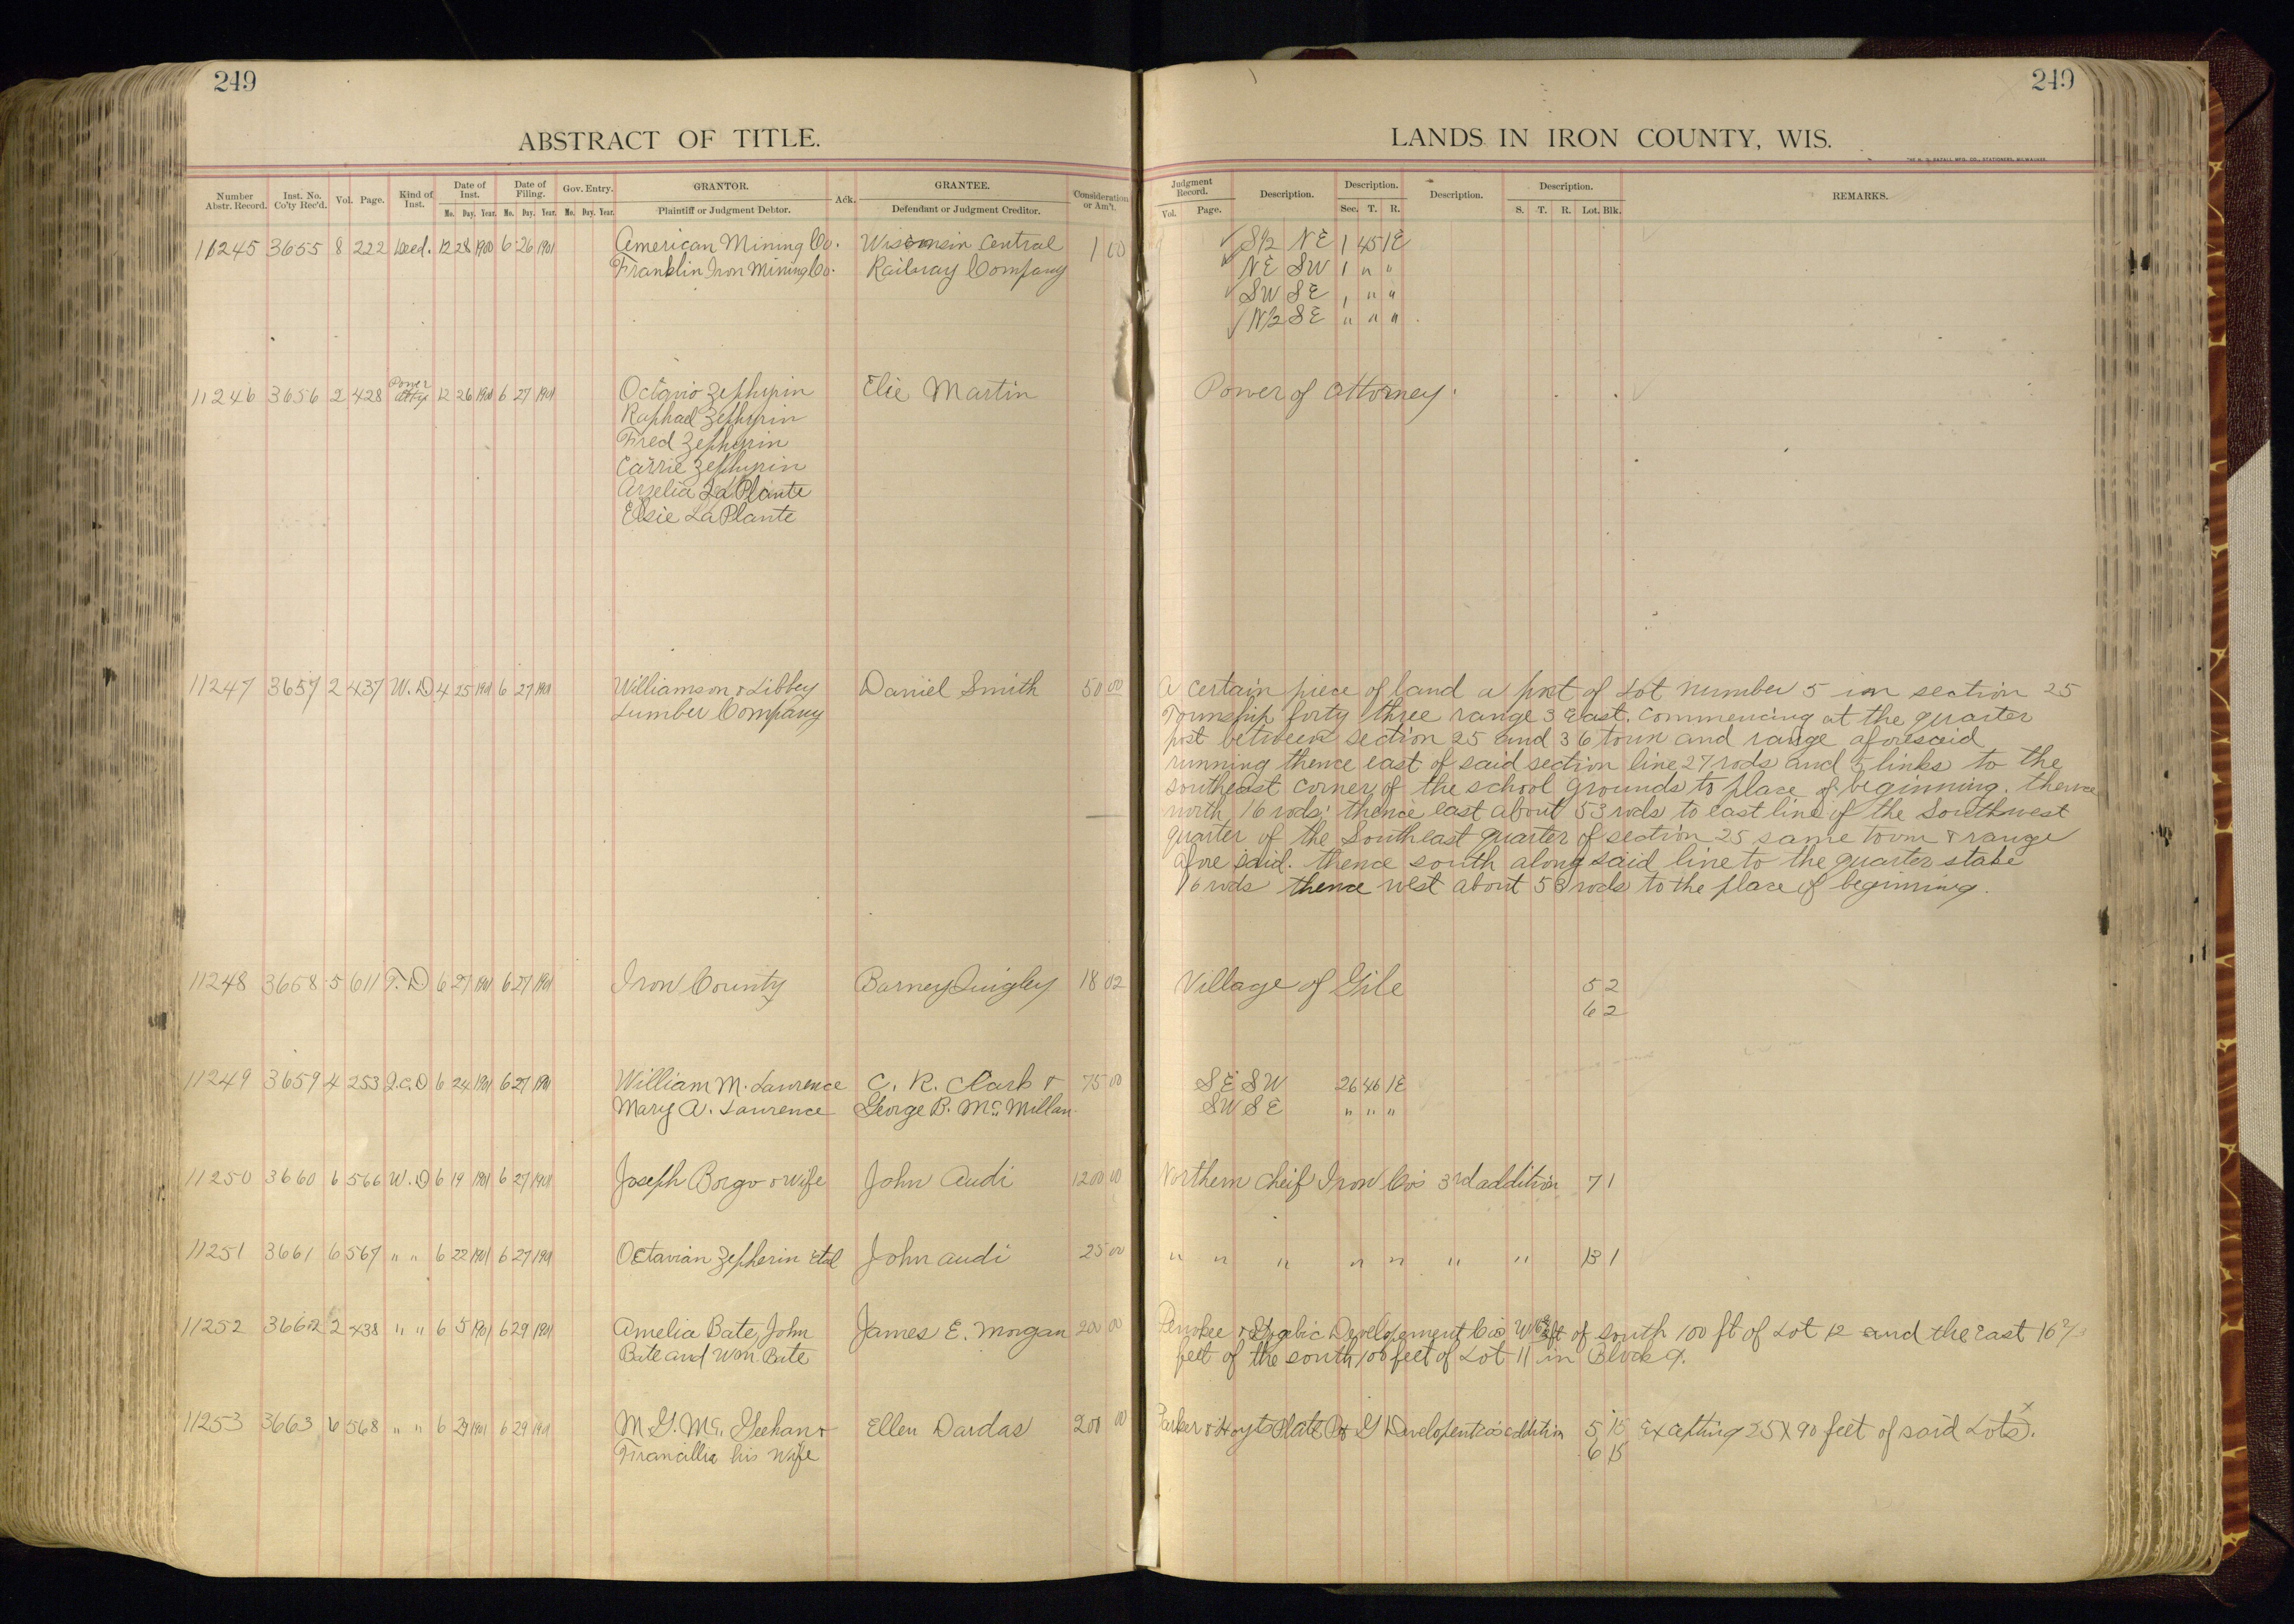 249
249
ABSTRACT OF TITLE.
LANDS IN IRON COUNTY, WIS.
THE H. G. RAZALL MFG. CO., STATIONERS, MILWAUKEE.
Number Abstr. Record. Inst. No. Co'ty Rec'd. Vol. Page. Kind of Inst. Date of Inst. Mo. Day. Year. Date of Filing. Mo. Day. Year. Gov. Entry. Mo. Day. Year. GRANTOR. Plaintiff or Judgment Debtor. Ack. GRANTEE. Defendant or Judgment Creditor. Consideration or Am't.
Judgment Record. Vol. Page. Description. Description. Sec. T. R. Description. Description. S. T. R. Lot. Blk. REMARKS.
11245 3655 8 222 Deed. 12 28 1900 6 26 1901 American Mining Co. Wisconsin Central 1 00 S½ NE 1 45 1E
Franklin Iron Mining Co. Railway Company NE SW 1 " "
SW SE 1 " "
N½ SE " " "
11246 3656 2 428 Power Atty 12 26 6 27 1901 Octavio Zephyrin Elie Martin Power of Attorney.
Raphael Zephyrin
Fred Zephyrin
Carrie Zephyrin
Arzelia LaPlante
Elsie LaPlante
11247 3657 2 437 W. D 4 25 1901 6 27 1901 Williamson & Libbey Daniel Smith 50 00 A certain piece of land a part of Lot number 5 in section 25
Lumber Company Township forty three range 3 East. Commencing at the quarter
post between section 25 and 36 town and range aforesaid
running thence east of said section line 27 rods and 5 links to the
southeast corner of the school grounds to place of beginning. thence
north 16 rods; thence east about 53 rods to east line of the Southwest
quarter of the Southeast quarter of section 25 same town & range
afore said. thence south along said line to the quarter stake
16 rods thence west about 53 rods to the place of beginning.
11248 3658 5 611 T. D 6 27 1901 6 27 1901 Iron County Barney Quigley 18 02 Village of Gile 5 2
6 2
11249 3659 4 253 Q.C.D 6 24 1901 6 27 1901 William M. Lawrence C. R. Clark & 75 00 SE SW 26 46 1E
Mary A. Lawrence George B. McMillan SW SE " " "
11250 3660 6 566 W. D 6 19 1901 6 27 1901 Joseph Borgo & Wife John Audi 1200 00 Northern Cheif Iron Co's 3rd addition 7 1
11251 3661 6 567 " " 6 22 1901 6 27 1901 Octavian Zepherin Etal John Audi 25 00 " " " " " " " 13 1
11252 3662 2 438 " " 6 5 1901 6 29 1901 Amelia Bate, John James E. Morgan 200 00 Penokee & Gogebic Developement Co's W ft of South 100 ft of Lot 12 and the east 16⅔
Bate and Wm. Bate feet of the south 100 feet of Lot 11 in Block 9.
11253 3663 6 568 " " 6 29 1901 6 29 1901 M. G. McGeehan & Ellen Dardas 200 00 Parker & Hoyts Plat P & G Developent Co's addition 5 15 Excepting 25 X 90 feet of said Lots.
Francillia his Wife 6 15